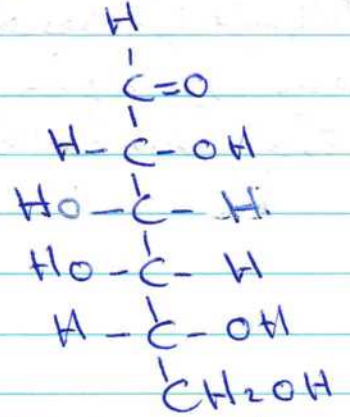 H
C=O
H-C-OH
HO-C-H.
HO-C-H
H-C-OH
CH2OH